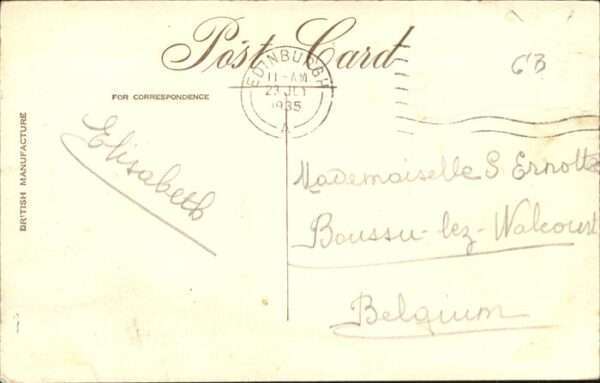 Post Card
EDINBURGH
11-AM
23 JLY
1935
A
GB
FOR CORRESPONDENCE
BRITISH MANUFACTURE
Elisabeth
Mademoiselle S Ernotte
Boussu-lez-Walcourt
Belgium